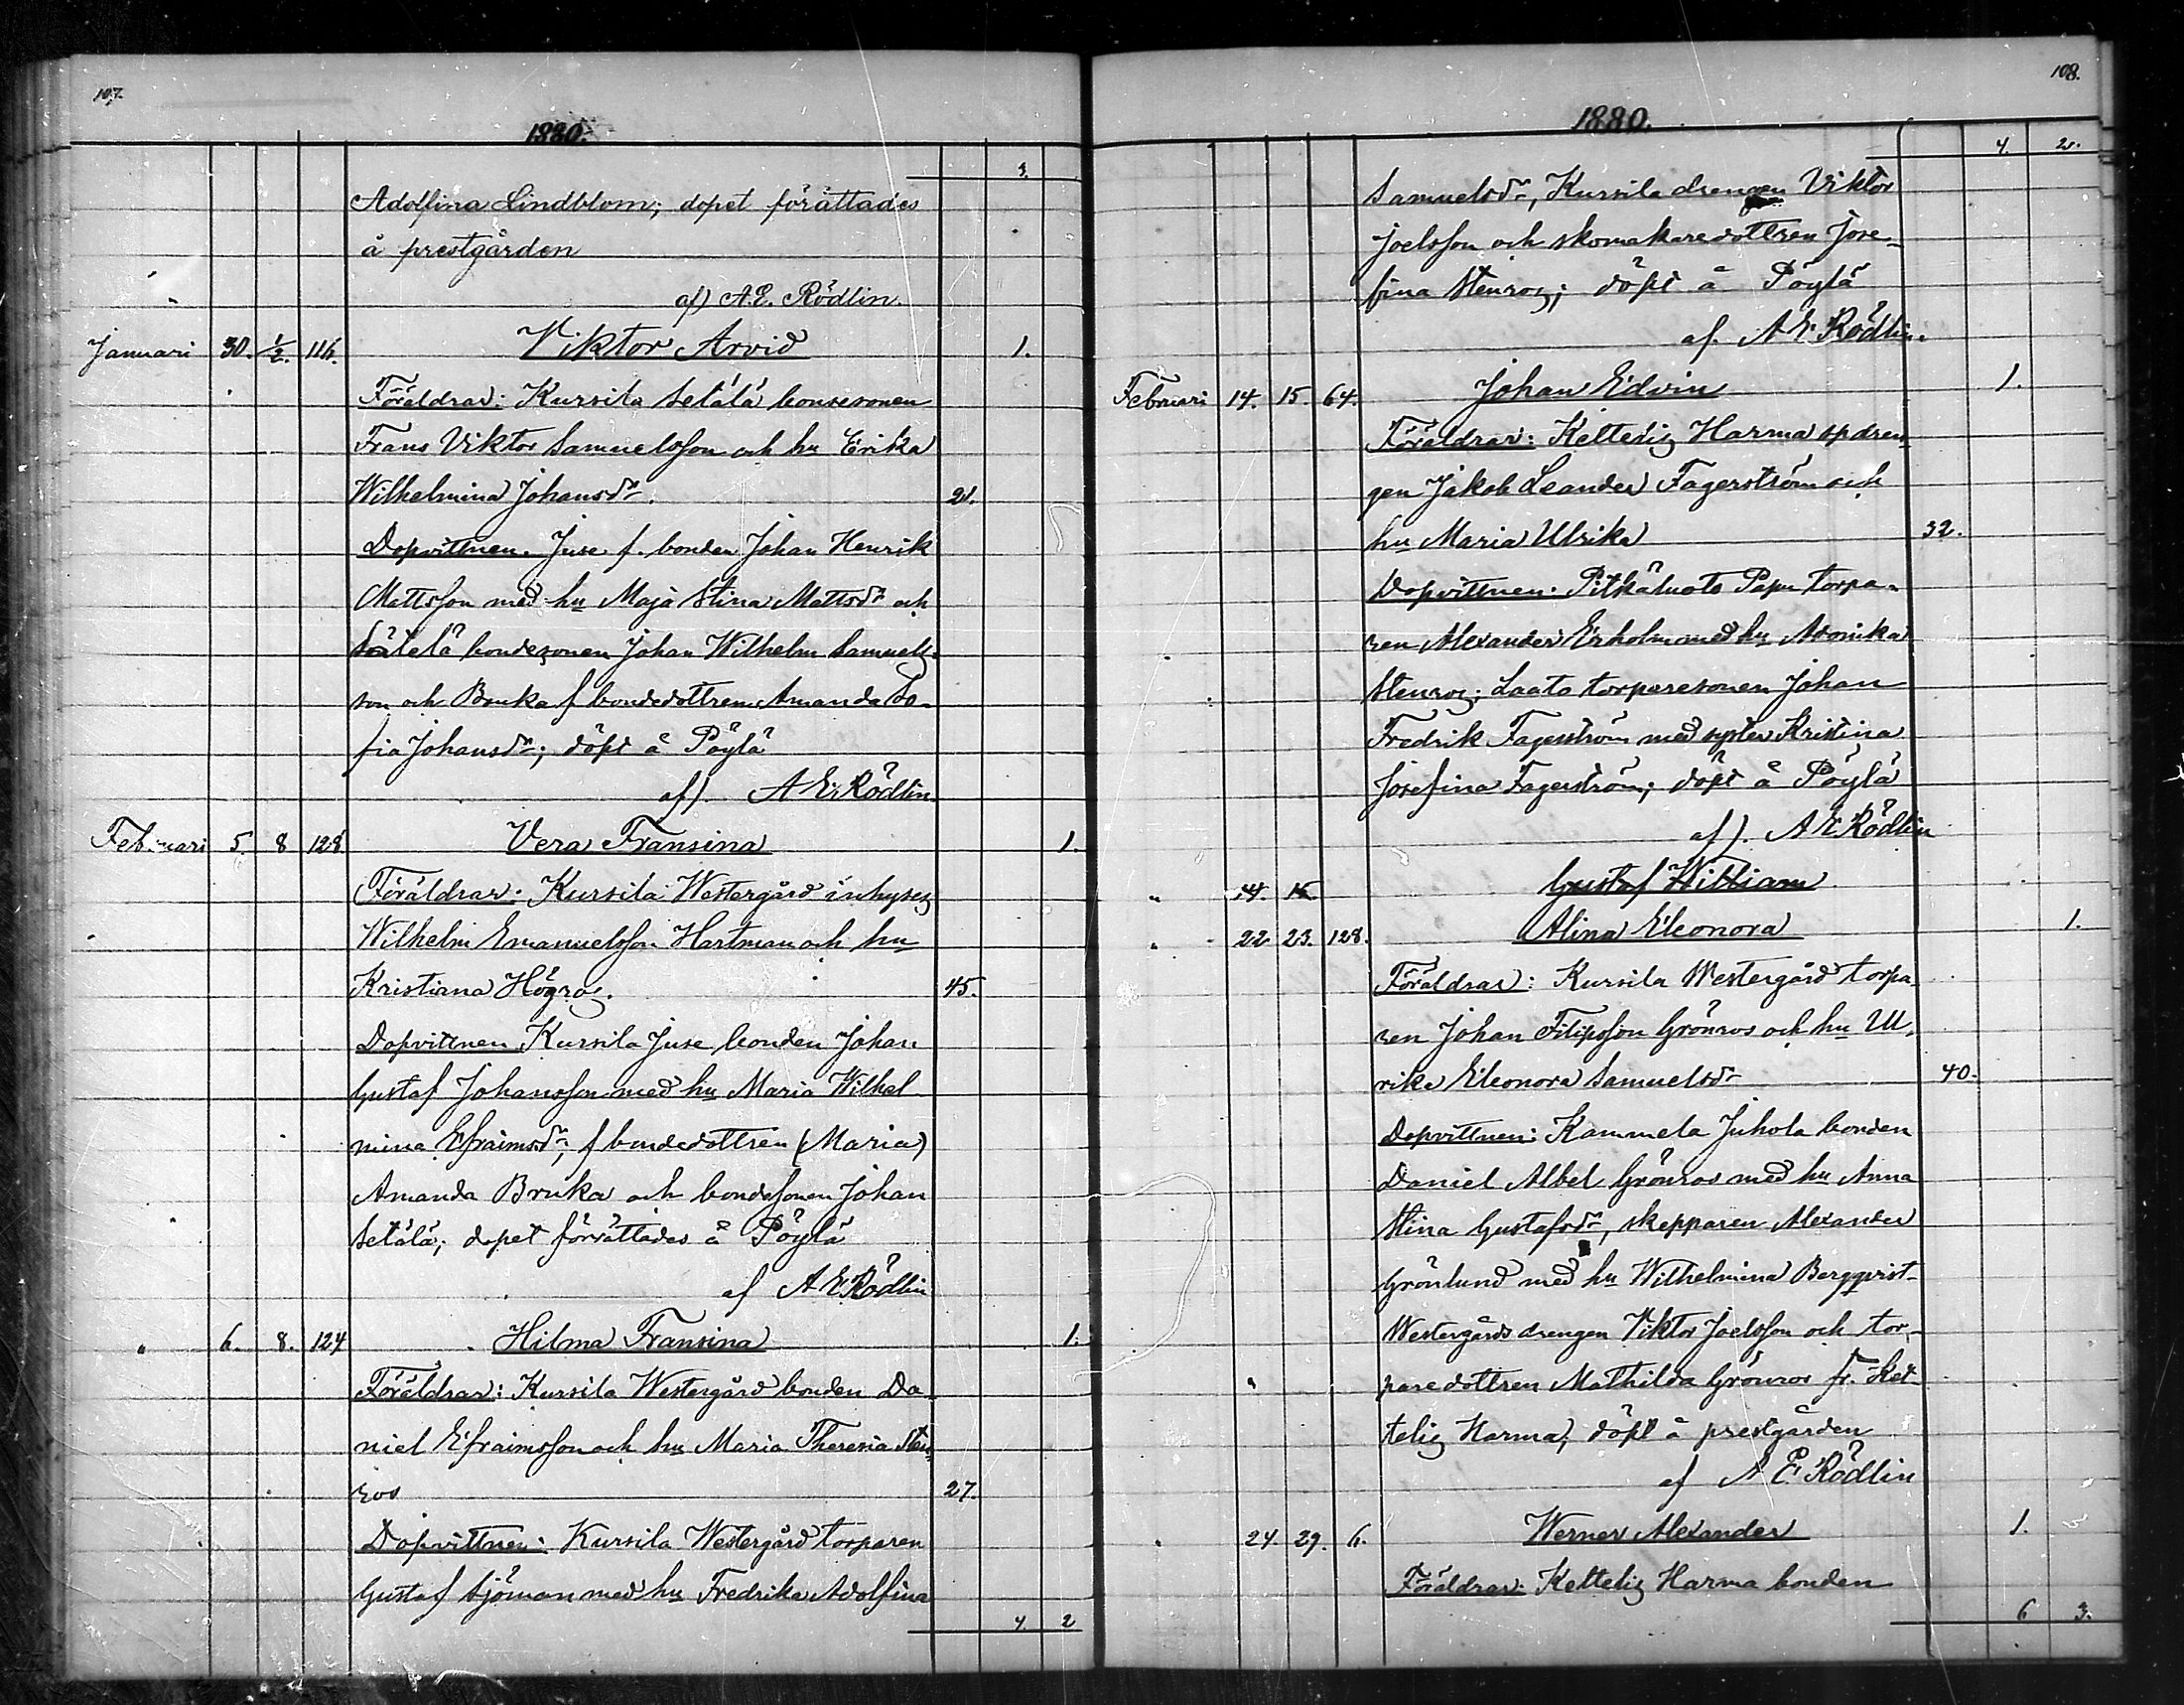 107.
1880.
3.
Adolfina Lindblom; dopet förättades
å prestgården
af) A.E. Rödlin.
Januari 30. 1/2. 116. Viktor Arvid 1.
Föräldrar: Kursila Setälä bonsesonen
Frans Viktor Samuelsson och hu Erika
Wilhelmina Johansdr. 21.
Dopvittnen. Juse f. bonden Johan Henrik
Mattsson med hu Maja Stina Mattsdr och
Sätelä bondesonen Johan Wilhelm Samuels-
son och Bruka f bondedottren Amanda So-
fia Johansdr; döpt å Pöylä
af). A E Rödlin.
Februari 5. 8 128. Vera Fransina 1.
Föräldrar: Kursila Westergård inhyses
Wilhelm Emanuelsson Hartman och hu
Kristiana Högros. 45.
Dopvittnen Kursila Juse bonden Johan
Gustaf Johansson med hu Maria Wilhel
mina Efraimsdr; f bondedottren (Maria)
Amanda Bruka och bondesonen Johan
Setälä; dopet förrättades å Pöylä
af A E Rödlin
" 6. 8. 124 Hilma Fransina 1.
Föräldrar: Kursila Westergård bonden Da-
niel Efraimsson och hu Maria Theresia Sten-
ros 27.
Dopvittnen: Kursila Westergård torparen
Gustaf Sjöman med hu Fredrika Adolfina
4. 2
108.
1880.
4. 2.
Samuelsdr, Kursila drengen Viktor
Joelsson och skomakaredottren Jose-
fina Stenros; döpt å Pöylä
af. A E Rödlin.
Februari 14. 15. 64. Johan Edvin 1.
Föräldrar: Kettelig Harma spdren-
gen Jakob Leander Fagerström och
hu Maria Ulrika 32.
Dopvittnen. Pitkäluoto Papu torpa-
ren Alexander Erholm med hu Adonika
Stenros; Laato torparesonen Johan
Fredrik Fagerström med syster Kristina
Josefina Fagerström; döpt å Pöylä
af). A E Rödlin
" 14. 15. Gustaf William
" 22. 23. 128. Alina Eleonora 1.
Föräldrar: Kursila Westergård torpa
ren Johan Filipsson Grönros och hu Ul-
rika Eleonora Samuelsdr 40.
Dopvittnen: Kammela Juhola bonden
Daniel Albel Grönros med hu Anna
Stina Gustafsdr, skepparen Alexander
Grönlund med hu Wilhelmina Bergqvist
Westergårds drengen Viktor Joelsson och tor-
paredottren Mathilda Grönros fr. Ket-
telig Harma; döpt å prestgården
af A E Rödlin
" 24. 29. 6. Werner Alexander 1.
Föräldrar: Kettelig Harma bonden
6 3.